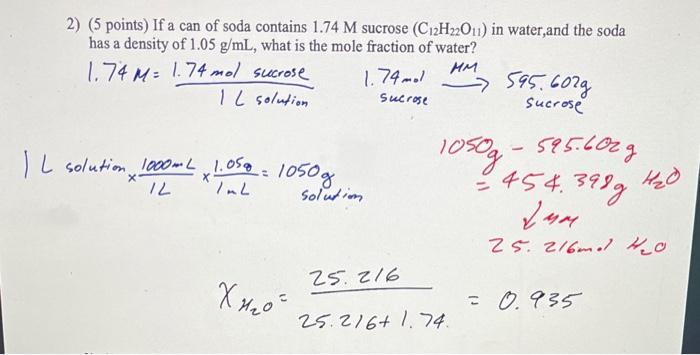 2) (5 points) If a can of soda contains 1.74 M sucrose (C₁₂H₂₂O₁₁) in water,and the soda
has a density of 1.05 g/mL, what is the mole fraction of water?
1.74 M = 1.74 mol sucrose / 1 L solution
1.74 mol sucrose MM → 595.602g sucrose
1 L solution x 1000mL / 1L x 1.05g / 1mL = 1050g solution
1050g - 595.602g
= 454.398g H₂O
↓ MM
25.216mol H₂O
X H₂O = 25.216 / 25.216 + 1.74. = 0.935